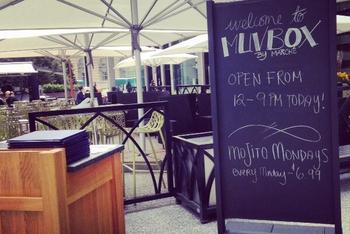 welcome to
MUVBOX
BY MARCHÉ
OPEN FROM
12-9 PM TODAY!
MOJITO MONDAYS
EVERY Monday - $6.99